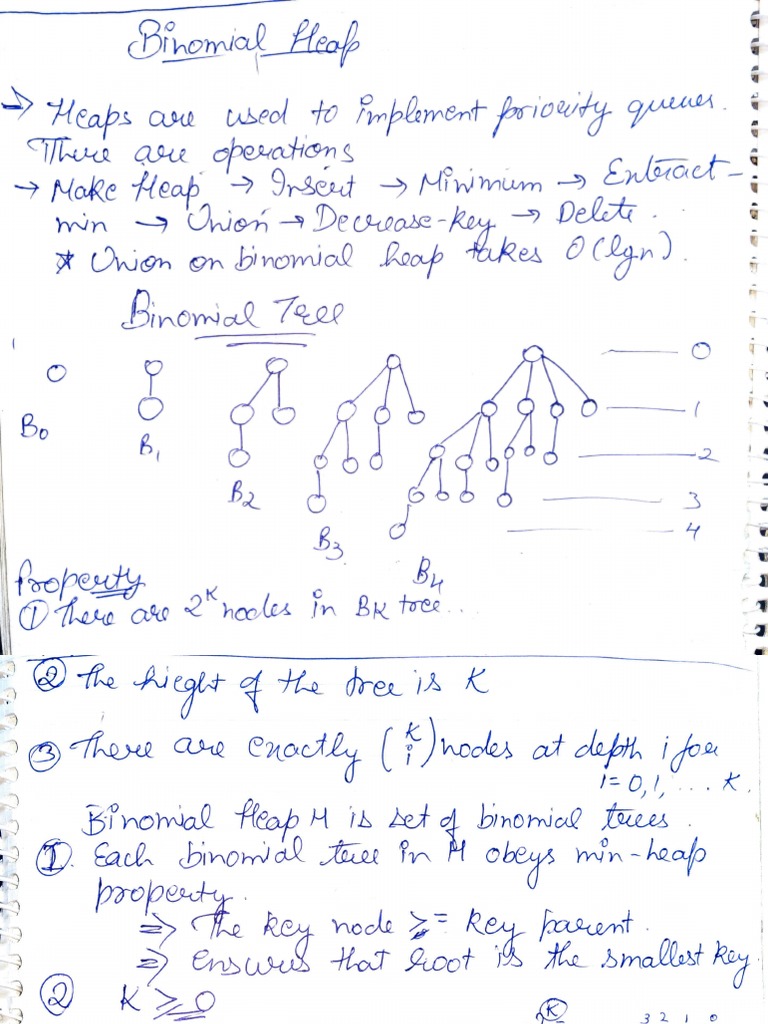 Binomial Heap
→ Heaps are used to implement priority queues.
There are operations
→ Make Heap → Insert → Minimum → Extract-
min → Union → Decrease-key → Delete.
* Union on binomial heap takes O(lgn).
Binomial Tree
0
1
B0
B1
2
B2
3
B3
4
B4
Property
① There are 2^K nodes in BK tree...
② The hieght of the tree is K
③ There are exactly (K i) nodes at depth i for
i=0,1,....K.
Binomial Heap H is set of binomial trees.
①. Each binomial tree in H obeys min-heap
property.
⇒ The key node >= key parent.
⇒ Ensures that root is the smallest key.
② K ≥ 0
K
3 2 1 0